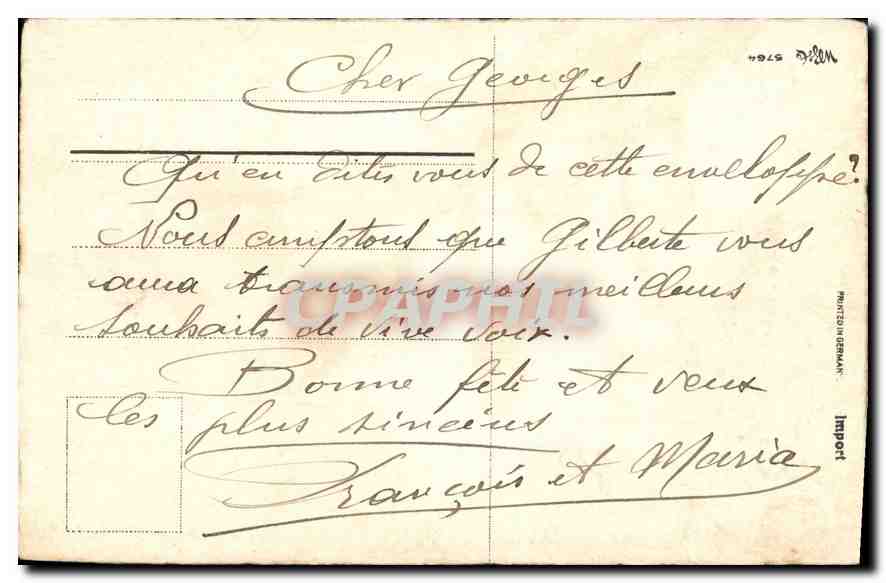 Cher Georges
Qu'en dites vous de cette enveloppe?
Nous comptons que Gilberte vous
aura transmis nos meilleurs
souhaits de vive voix.
Bonne fête et vœux
les plus sincères
François et Maria
5764
PRINTED IN GERMANY
Import
CPAPHIL